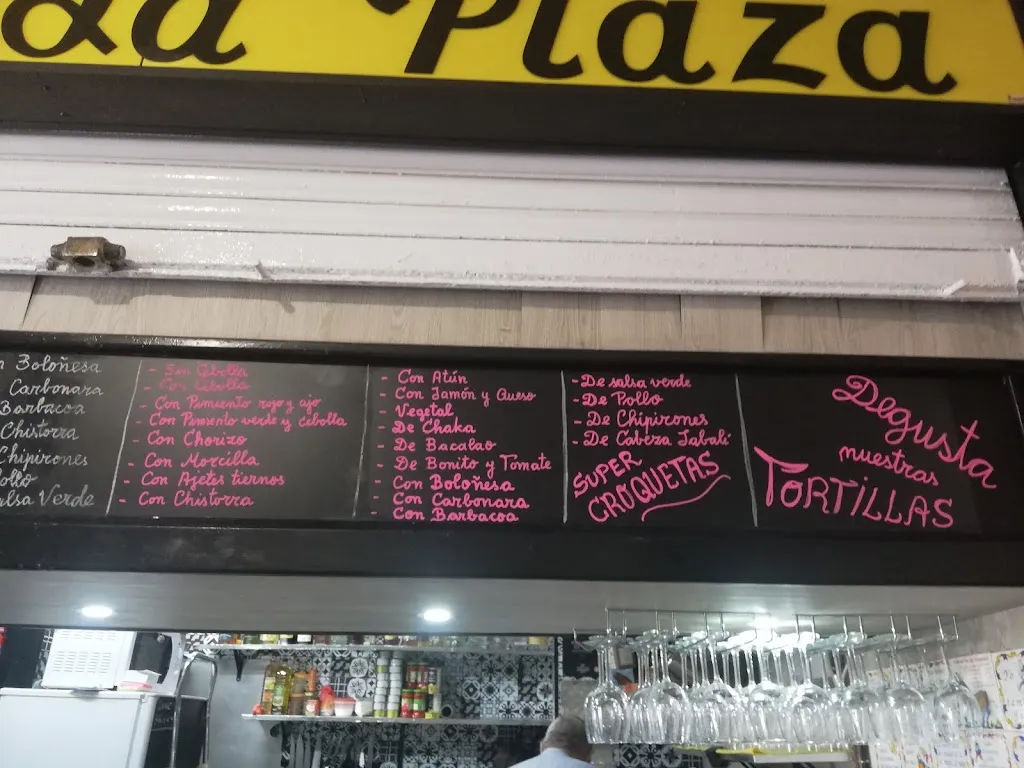 La Plaza
Boloñesa
Carbonara
Barbacoa
Chistorra
Chipirones
Pollo
Salsa Verde
- Sin Cebolla
- Con Cebolla
- Con Pimiento rojo y ajo
- Con Pimiento verde y cebolla
- Con Chorizo
- Con Morcilla
- Con Ajetes tiernos
- Con Chistorra
- Con Atún
- Con Jamón y Queso
- Vegetal
- De Chaka
- De Bacalao
- De Bonito y Tomate
- Con Boloñesa
- Con Carbonara
- Con Barbacoa
- De salsa verde
- De Pollo
- De Chipirones
- De Cabeza Jabalí
SUPER
CROQUETAS
Degusta
nuestras
TORTILLAS